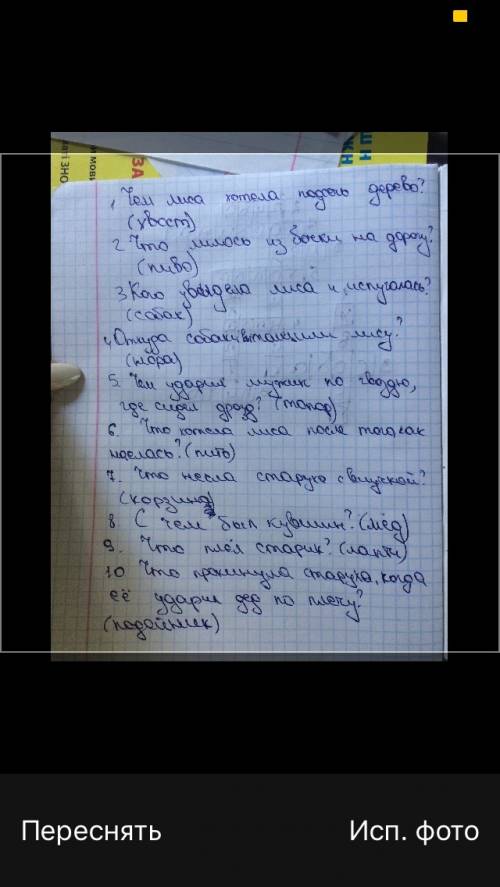 ЗА
аті ЗНО
1. Чем лиса хотела подсечь дерево?
(хвост)
2. Что лилось из бочки на дорогу?
(пиво)
3. Кого увидела лиса и испугалась?
(собак)
4. Откуда собаки вытащили лису?
(нора)
5. Чем ударил мужик по гвоздю,
где сидел дрозд? (топор)
6. Что хотела лиса после того, как
наелась? (пить)
7. Что несла старуха с внучкой?
(корзина)
8 С чем был кувшин? (мёд)
9. Что плёл старик? (лапти)
10 Что прокинула старуха, когда
её ударил дед по плечу?
(подойник)
Переснять
Исп. фото